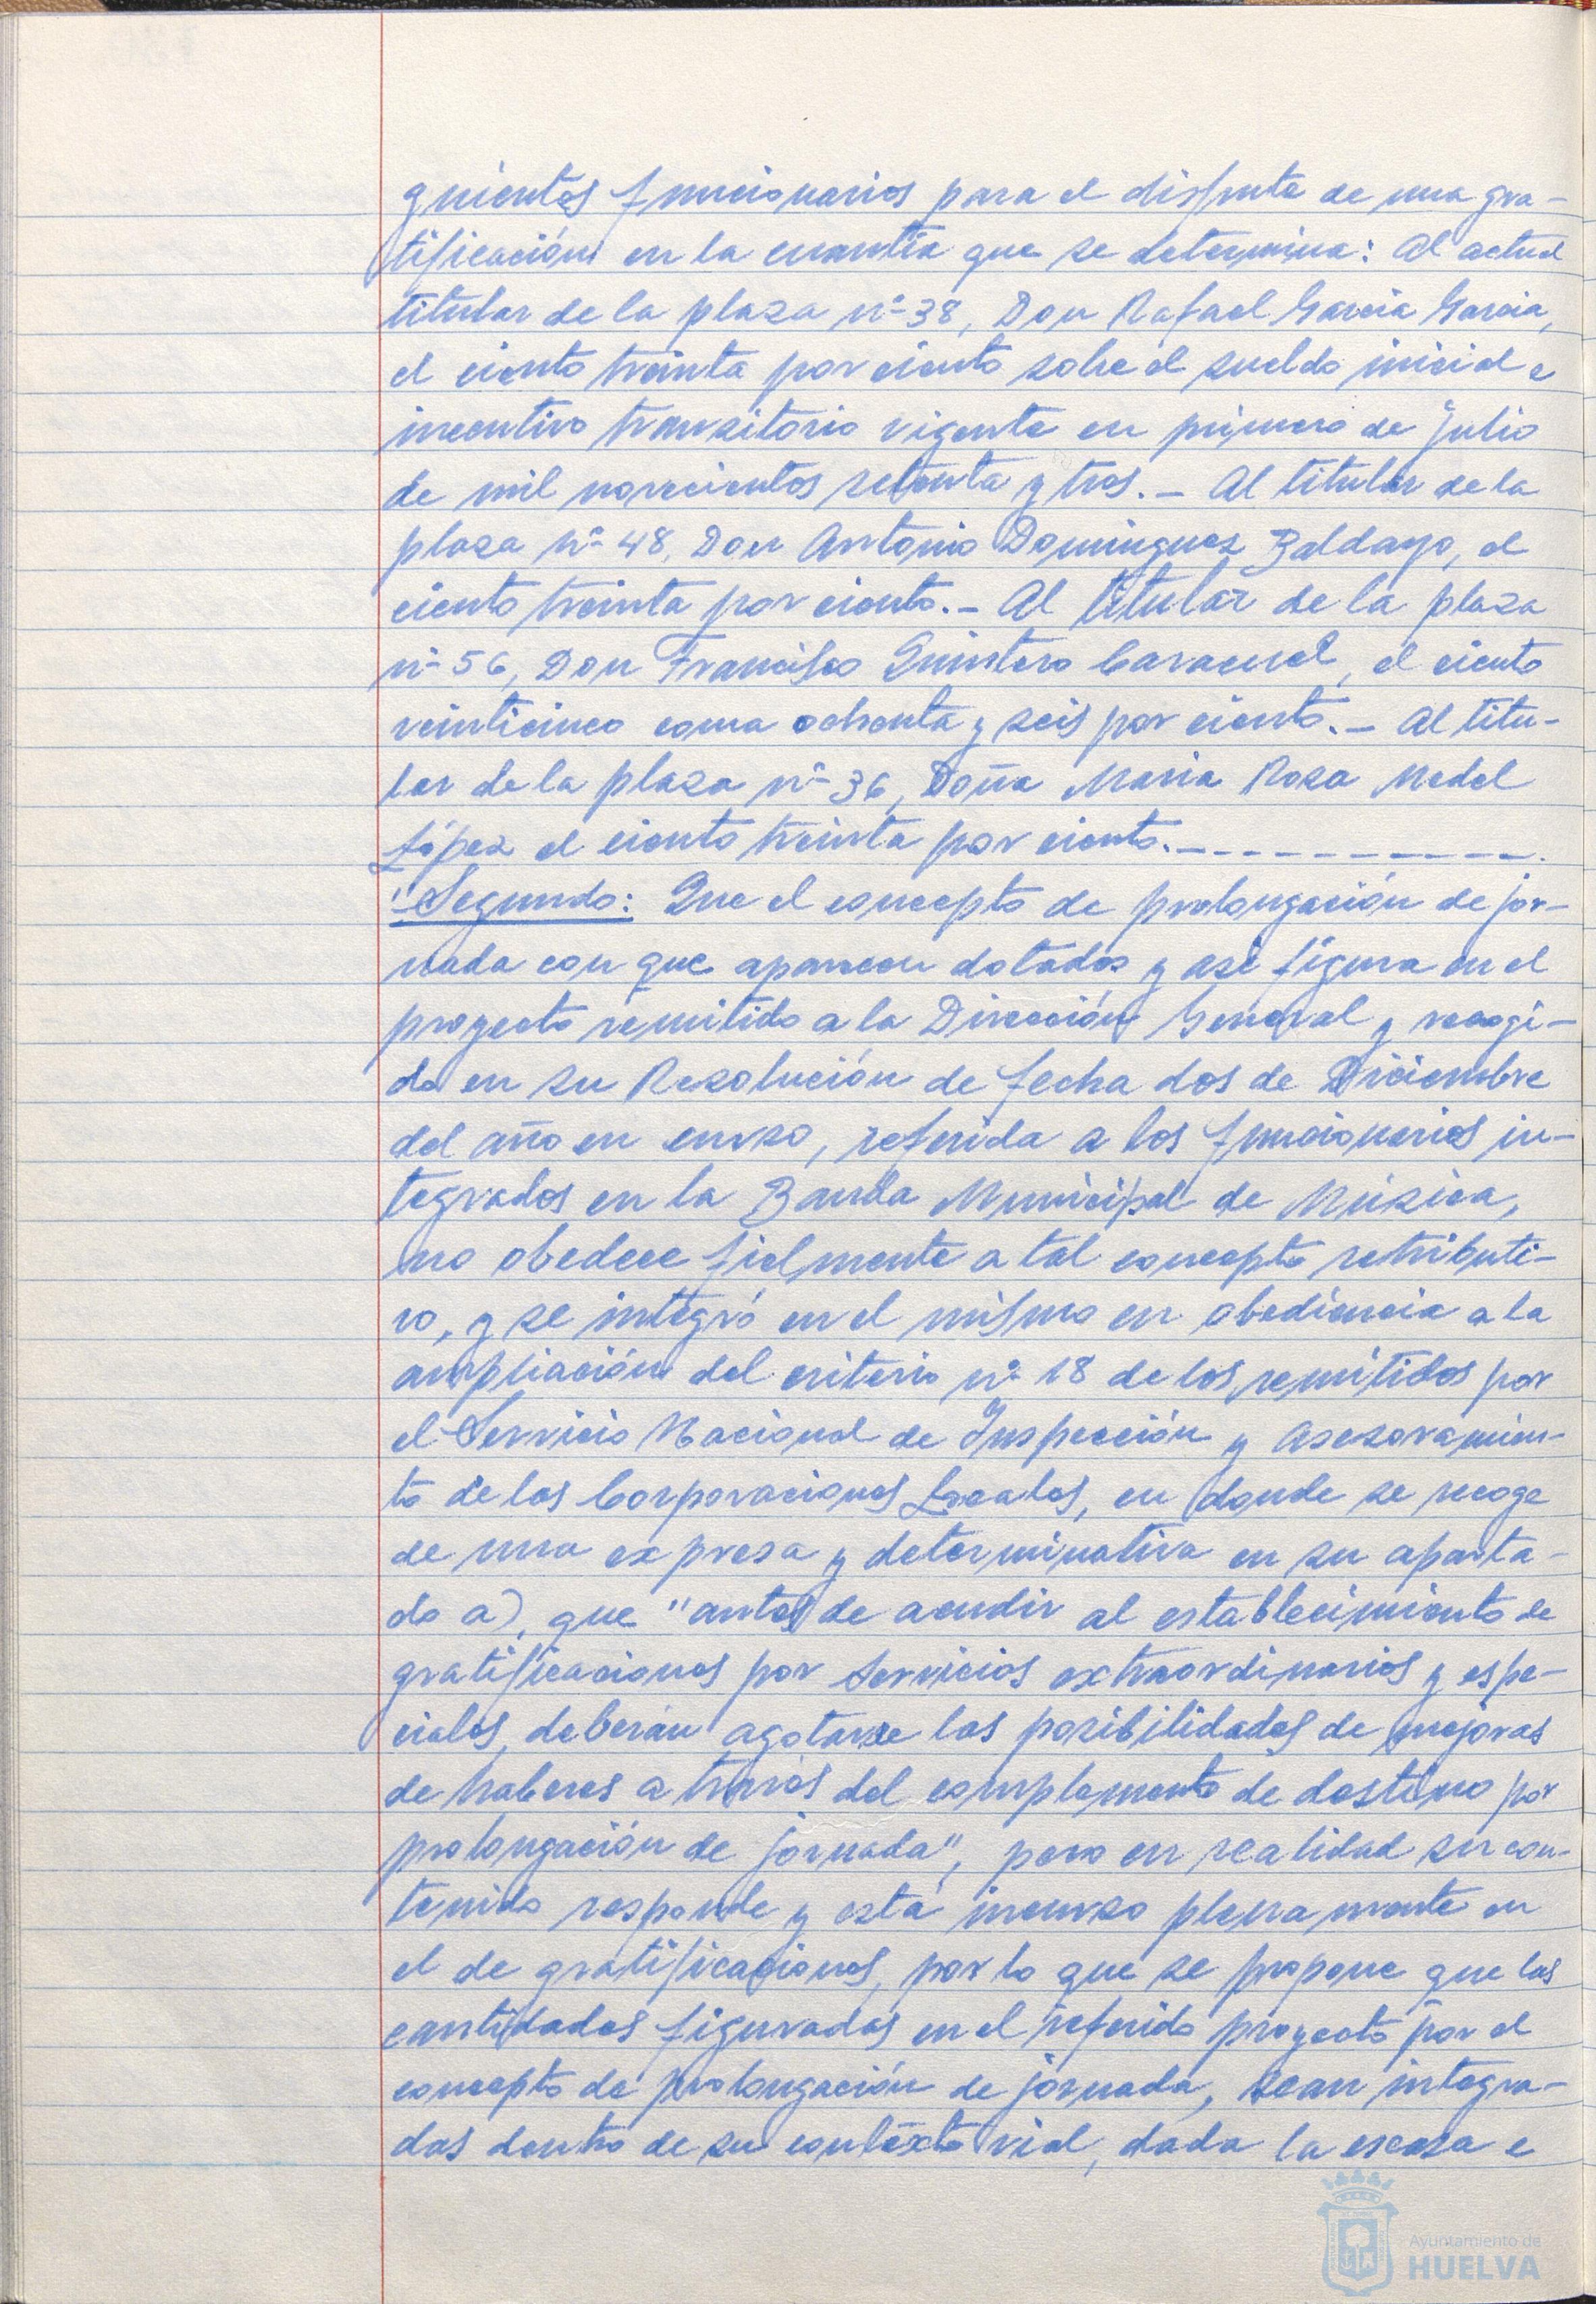 guientes funcionarios para el disfrute de una gra-
tificación en la cuantía que se determina: Al actual
titular de la plaza nº 38, Don Rafael García García,
el ciento treinta por ciento sobre el sueldo inicial e
incentivo transitorio vigente en primero de Julio
de mil novecientos setenta y tres.- Al titular de la
plaza nº 48, Don Antonio Dominguez Baldayo, el
ciento treinta por ciento.- Al titular de la plaza
nº 56, Don Francisco Quintero Caracuel, el ciento
veinticinco coma ochenta y seis por ciento.- Al titu-
lar de la plaza nº 36, Doña Maria Rosa Medel
López el ciento treinta por ciento.------------.
"Segundo: Que el concepto de prolongación de jor-
nada con que aparecen dotados y asi figura en el
proyecto remitido a la Dirección General y recogi-
do en su Resolución de fecha dos de Diciembre
del año en curso, referida a los funcionarios in-
tegrados en la Banda Municipal de Música,
no obedece fielmente a tal concepto retributi-
vo, y se integró en el mismo en obediencia a la
ampliación del criterio nº 18 de los remitidos por
el Servicio Nacional de Inspección y Asesoramien-
to de las Corporaciones Locales, en donde se recoge
de una expresa y determinativa en su aparta-
do a), que "antes de acudir al establecimiento de
gratificaciones por servicios extraordinarios y espe-
ciales, deberán agotarse las posibilidades de mejoras
de haberes a través del complemento de destino por
prolongación de jornada", pero en realidad su con-
tenido responde y está incurso plenamente en
el de gratificaciones, por lo que se propone que las
cantidades figuradas en el referido proyecto por el
concepto de prolongación de jornada, sean integra-
das dentro de su contexto vial, dada la escasa e
Ayuntamiento de
HUELVA